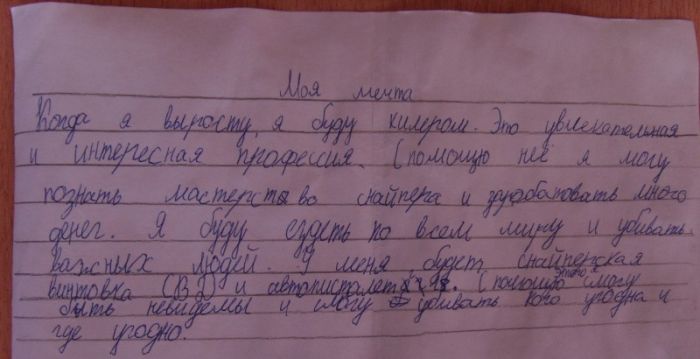 Моя мечта
Когда я выросту, я буду килером. Это увлекательная
и интересная профессия. С помощю неё я могу
познать мастерство снайпера и зарабатовать много
денег. Я буду ездеть по всем миру и убивать
важных людей. У меня будет снайперская
винтовка и автописталет. С помощю этого я смогу
быть невидемы и смогу убивать кого угодна и
где угодно.